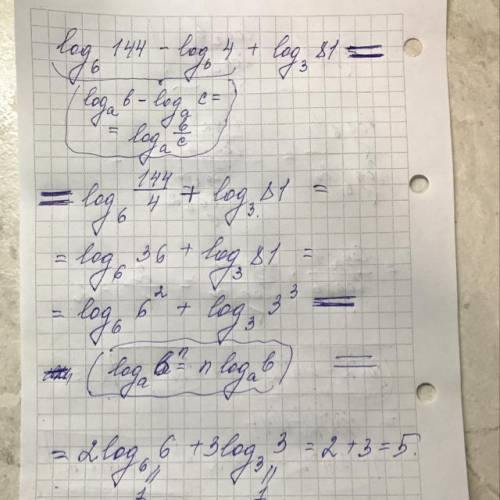 log₆ 144 − log₆ 4 + log₃ 81 =
(logₐ b − logₐ c =
= logₐ b/c)
= log₆ 144/4 + log₃ 81 =
= log₆ 36 + log₃ 81 =
= log₆ 6² + log₃ 3³ =
(logₐ bⁿ = n logₐ b) =
= 2 log₆ 6 + 3 log₃ 3 = 2 + 3 = 5.
" "
1 1